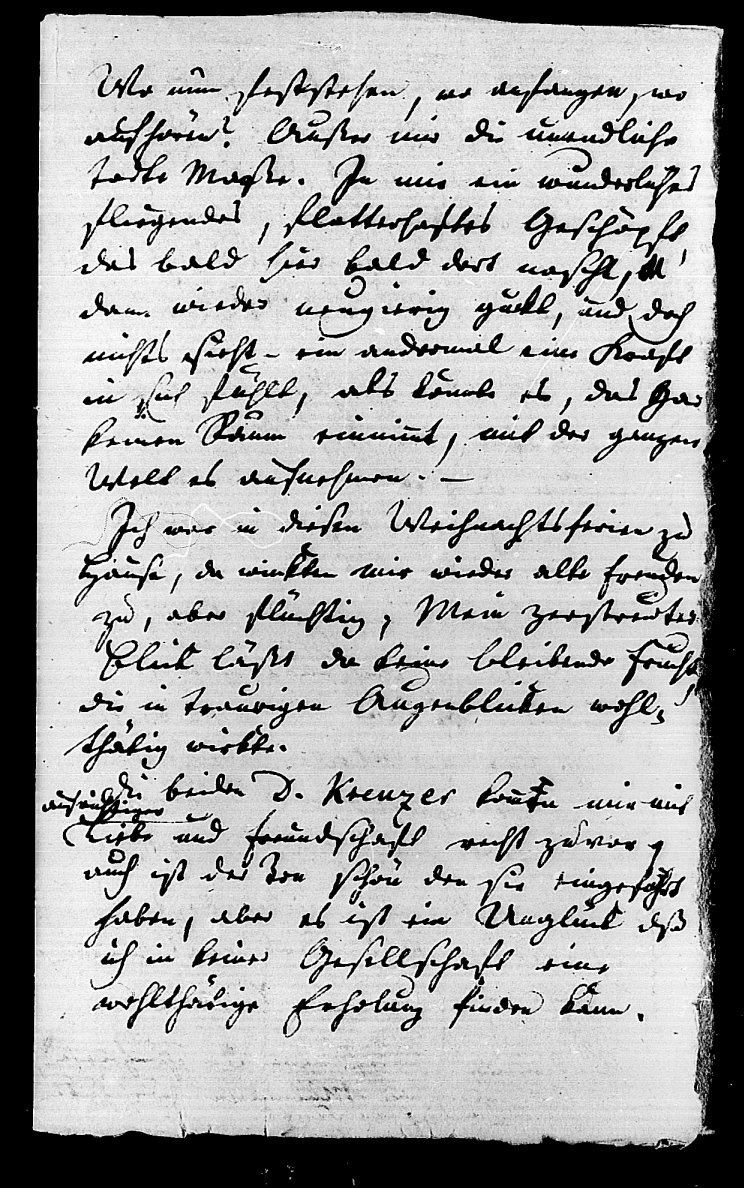 Wo nun feststehen, wo anfangen, wo
aufhören? Außer mir die unendliche
todte Maße. In mir ein wunderliches
fliegendes, flatterhaftes Geschöpf,
das bald hier bald dort nascht,
dann wieder neugierig gukt, und doch
nichts sieht – ein andermal eine Kraft
in sich fühlt, als könnte es, das Gar
keinen Raum einnimt, mit der ganzen
Welt es aufnehmen. –
Ich war in diesen Weihnachtsferien zu
Hause, da winkten mir wieder alte Freuden
zu, aber flüchtig, Mein zerstreuter
Blick läßt da keine bleibende Frucht,
die in traurigen Augenblicken wohl-
thätig wirkte.
die beiden D. Kreuzer komen mir mit
aufrichtiger
Liebe und Freundschaft recht zuvor,
auch ist der Ton schön den sie eingeführt
haben, aber es ist ein Unglück dß
ich in keiner Gesellschaft eine
wohlthätige Erholung finden kann.